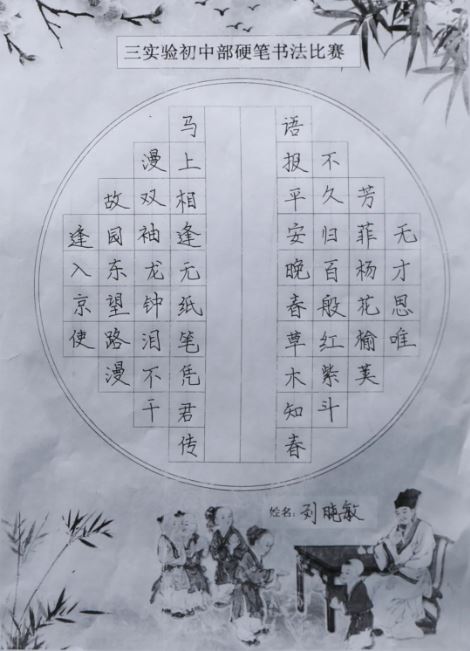 三实验初中部硬笔书法比赛
逢入京使
故园东望路漫
漫双袖龙钟泪不干
马上相逢无纸笔凭君传
语报平安晚春草木知春
不久归百般红紫斗
芳菲杨花榆荚
无才思唯
姓名:刘晓敏